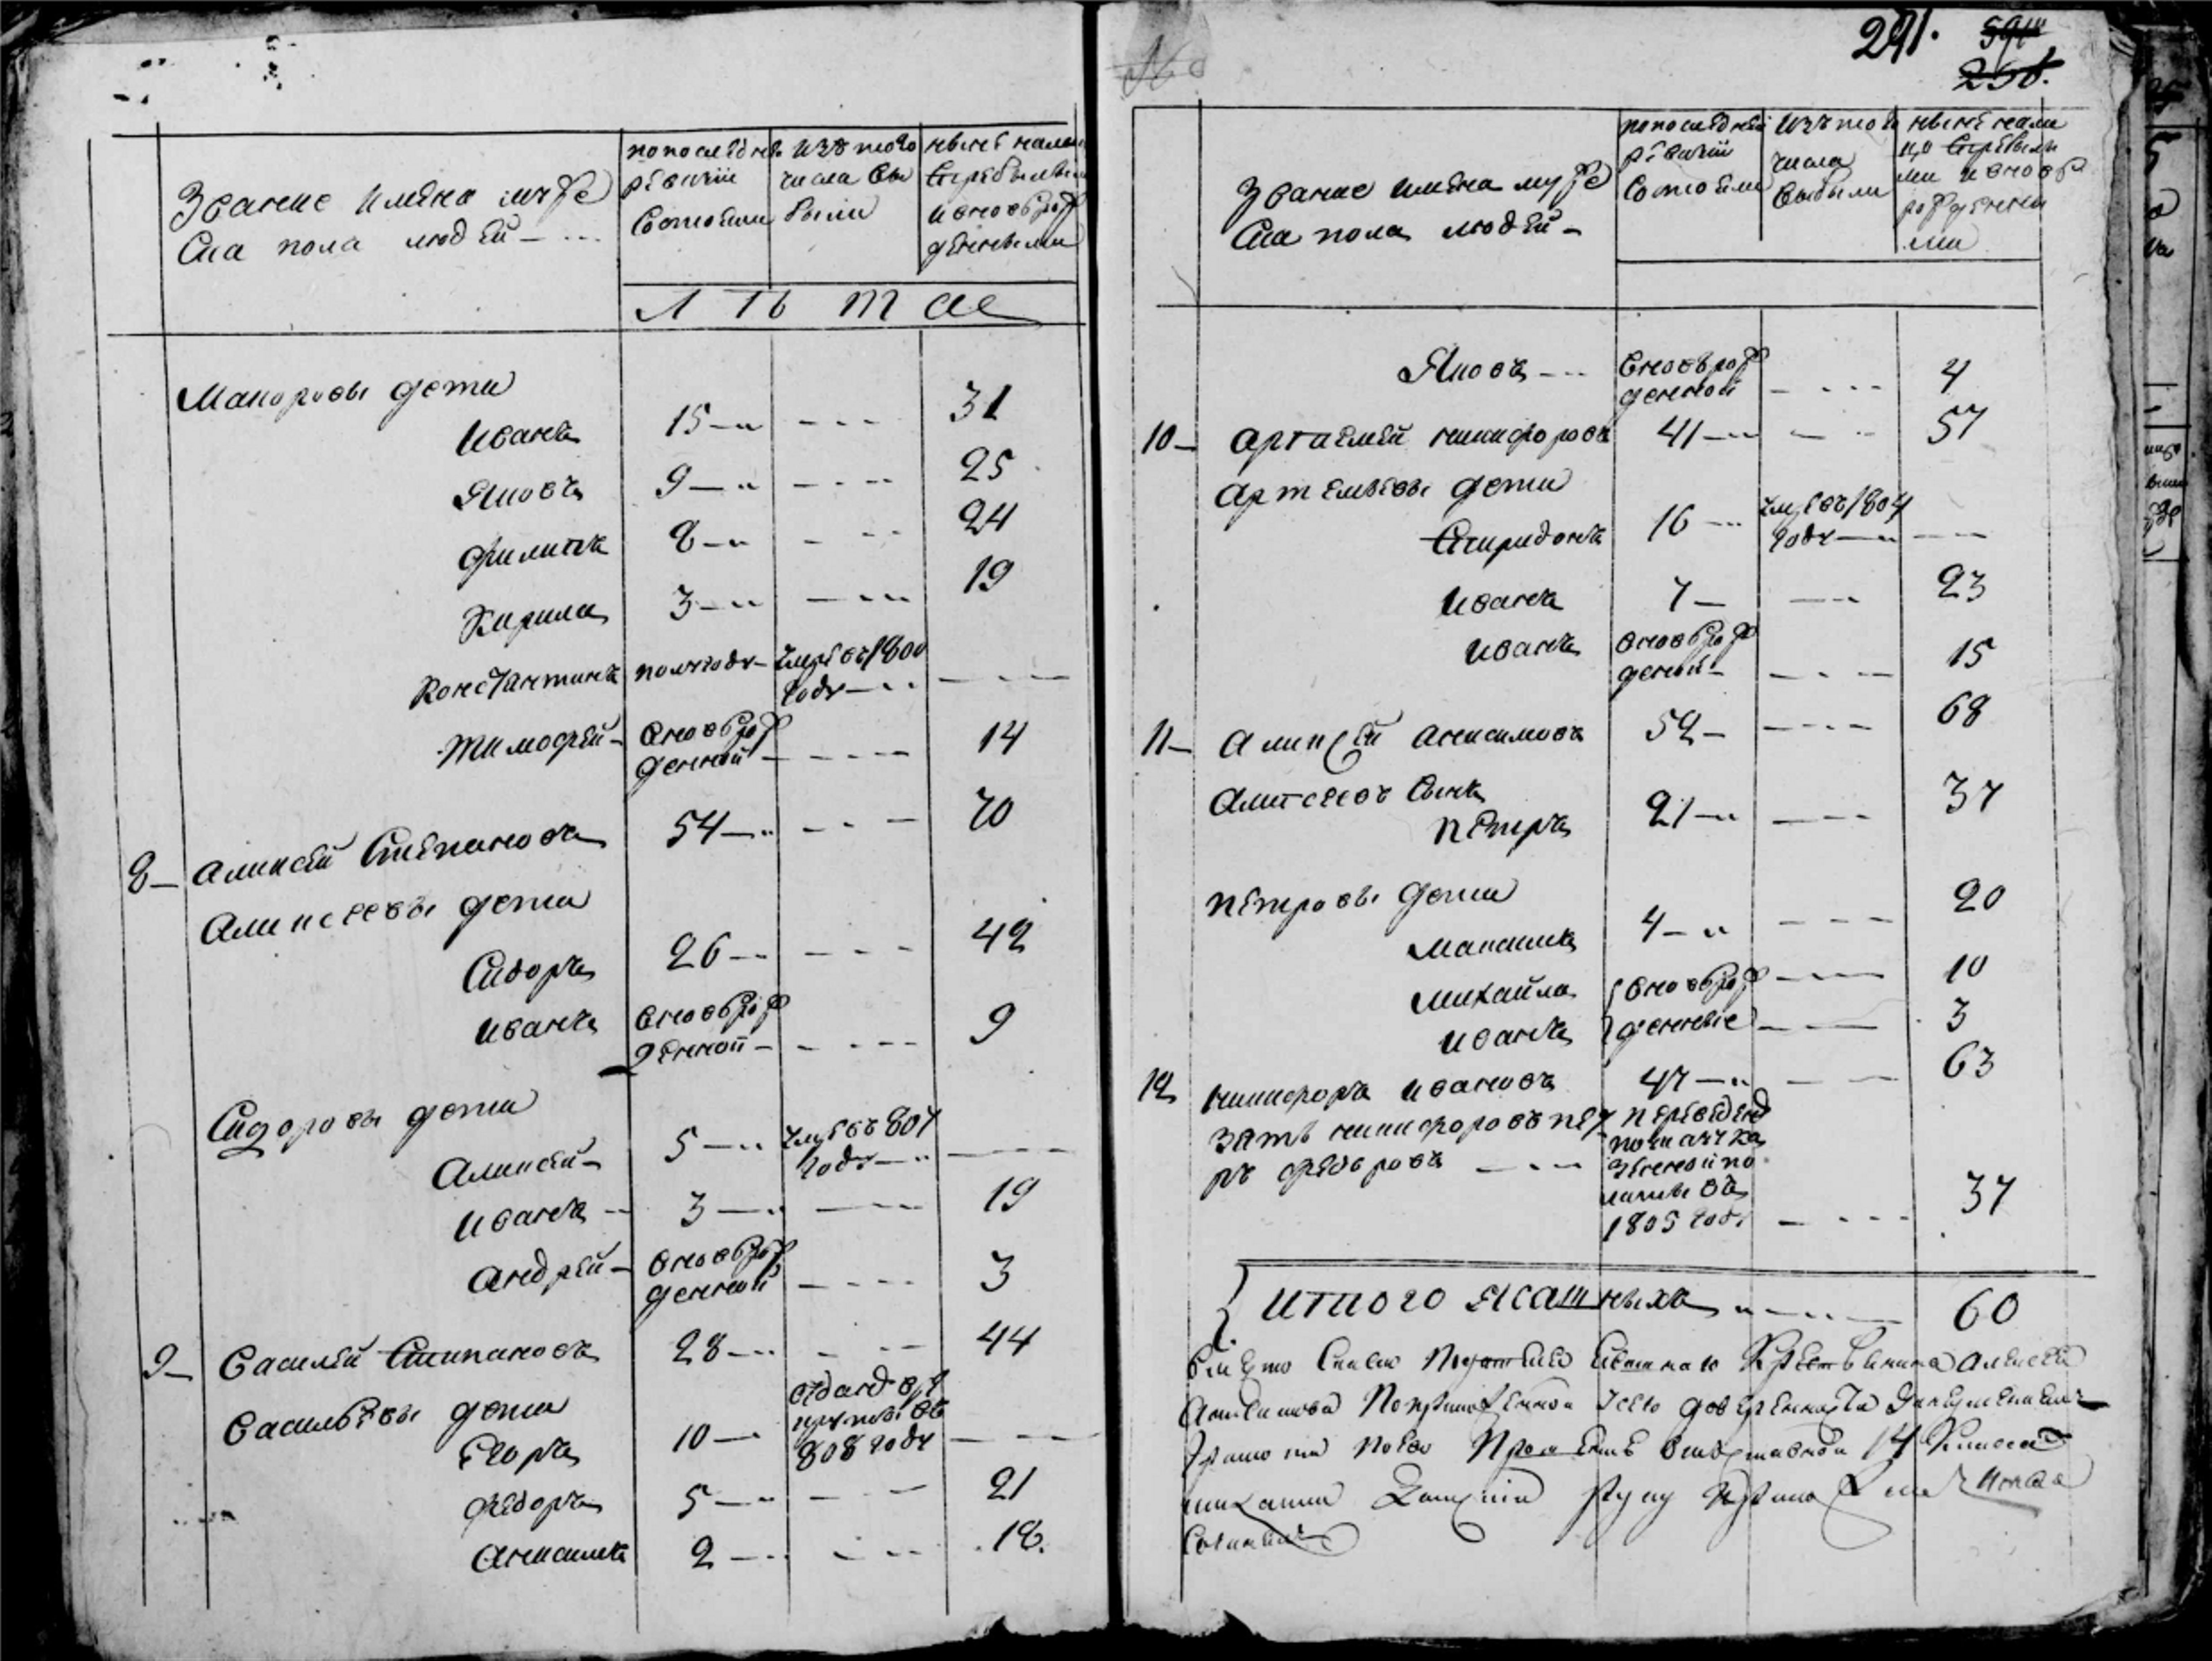 Звание имена муже
ска пола людей
по последней
ревизии
состояли
изъ того
числа вы
были
ныне нали
с прибылыми
и вновь рож
денными
лѣта
Макаровы дети
Иванъ 15 31
Яковъ 9 25
Филипъ 8 24
Кирила 3 19
Константинъ полугоду умре въ 1800
году
Тимофей вновь рож
денной 14
8 Алексей Степановъ 54 70
Алексеевы дети
Сидоръ 26 42
Иванъ вновь рож
денной 9
Сидоровы дети
Алексей 5 умре въ 807
году
Иванъ 3 19
Андрей вновь рож
денной 3
9 Василей Степановъ 28 44
Васильевы дети
Егоръ 10 отданъ в ре
круты въ
808 году
Федоръ 5 21
Анисимъ 2 18
291.
Звание имена муже
ска пола людей
по последней
ревизии
состояли
изъ того
числа
выбыли
ныне нали
цо с прибылы
ми и вновь
рожденны
ми
Яковъ вновь рож
денной 4
10 Артемей Никифоровъ 41 57
Артемьевы дети
Спиридонъ 16 умре въ 1804
году
Иванъ 7 23
Иванъ вновь рож
деной 15
11 Алексей Анисимовъ 52 68
Алексеевъ сынъ
Петръ 21 37
Петровы дети
Максимъ 4 20
Михайла вновь рож 10
Иванъ денные 3
12 Никифоръ Ивановъ 47 63
Зять Никифоровъ Пет
ръ Федоровъ
переведенъ
по
въ
1805 году 37
Итого ясашныхъ 60